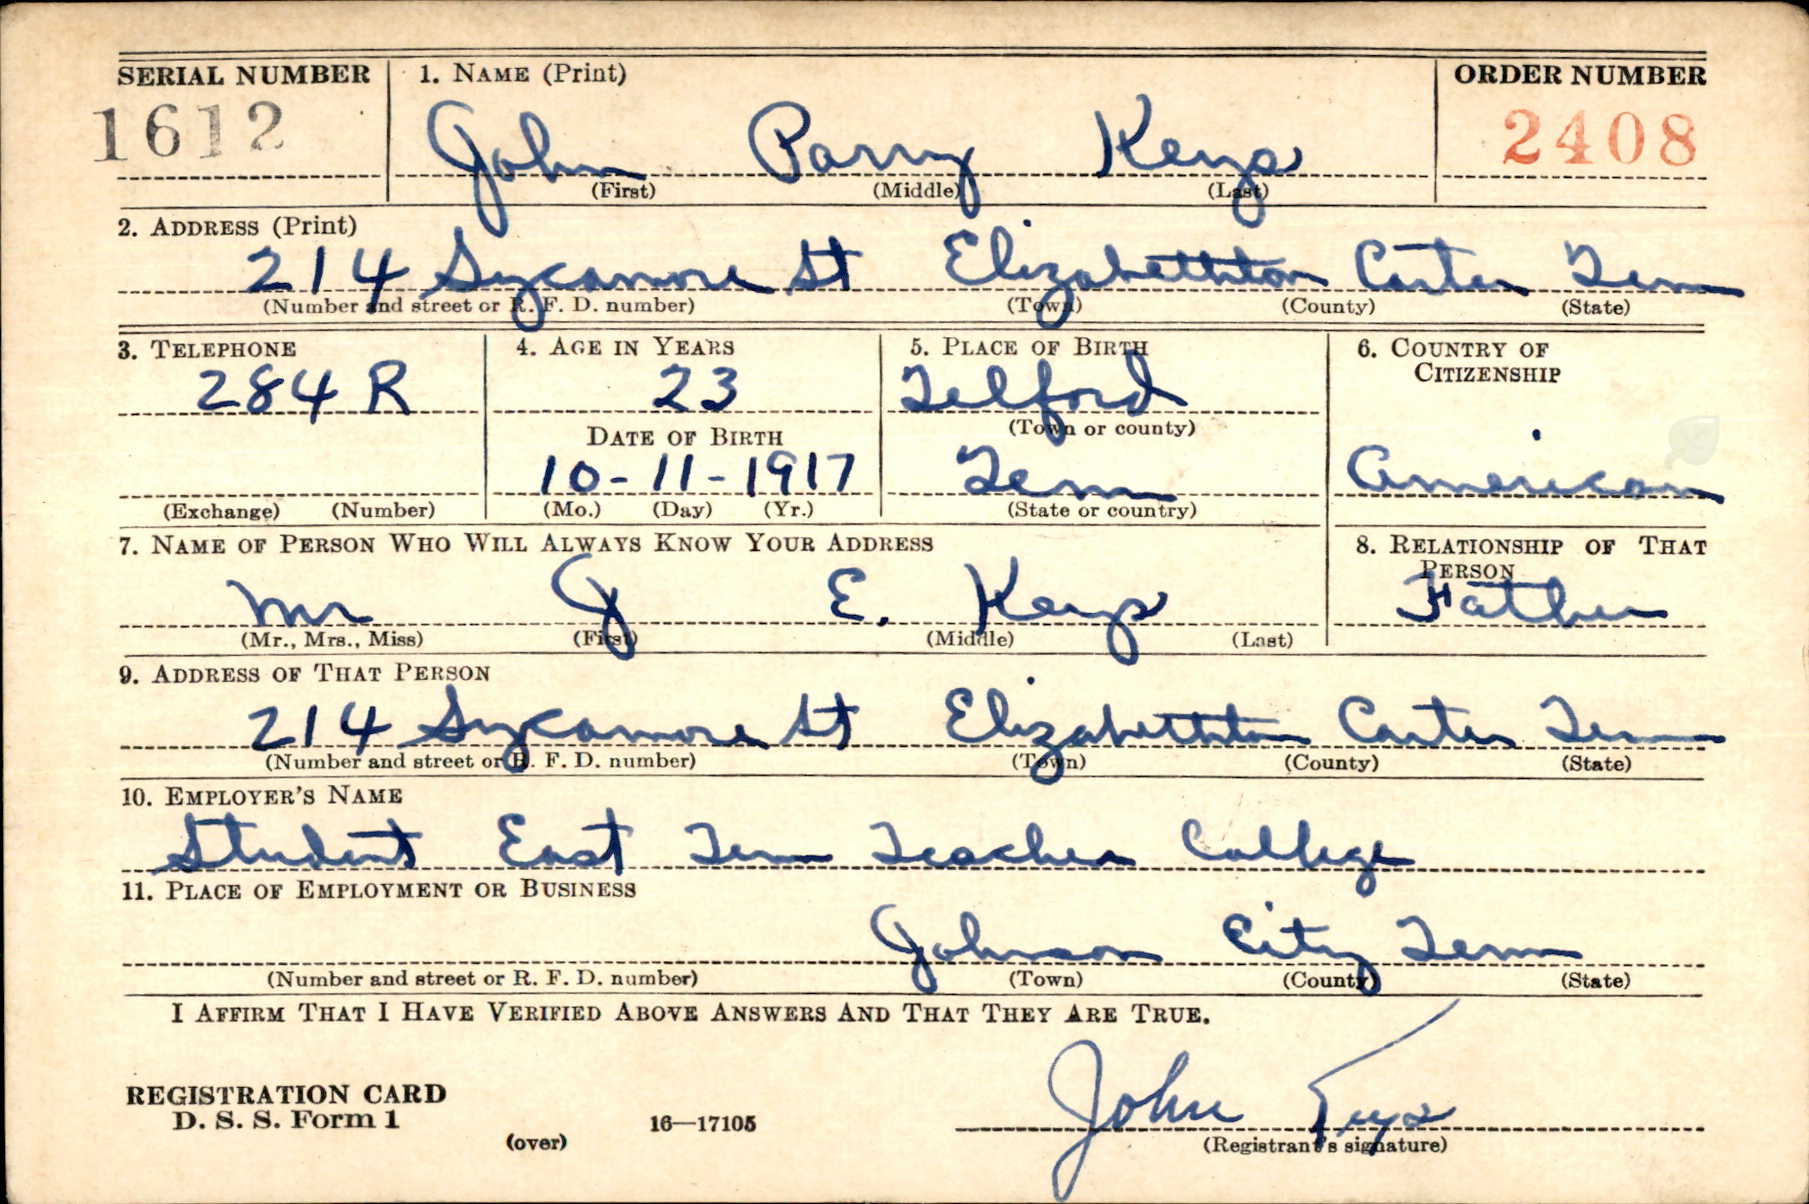 SERIAL NUMBER 1. NAME (Print) ORDER NUMBER
1612 John Parry Keys 2408
(First) (Middle) (Last)
2. ADDRESS (Print)
214 Sycamore St Elizabethton Carter Tenn
(Number and street or R. F. D. number) (Town) (County) (State)
3. TELEPHONE 4. AGE IN YEARS 5. PLACE OF BIRTH 6. COUNTRY OF
CITIZENSHIP
284 R 23 Telford
(Town or county)
DATE OF BIRTH
10-11-1917 Tenn American
(Exchange) (Number) (Mo.) (Day) (Yr.) (State or country)
7. NAME OF PERSON WHO WILL ALWAYS KNOW YOUR ADDRESS 8. RELATIONSHIP OF THAT
PERSON
Mr J E. Keys Father
(Mr., Mrs., Miss) (First) (Middle) (Last)
9. ADDRESS OF THAT PERSON
214 Sycamore St Elizabethton Carter Tenn
(Number and street or R. F. D. number) (Town) (County) (State)
10. EMPLOYER'S NAME
Student East Tenn Teacher College
11. PLACE OF EMPLOYMENT OR BUSINESS
Johnson City Tenn
(Number and street or R. F. D. number) (Town) (County) (State)
I AFFIRM THAT I HAVE VERIFIED ABOVE ANSWERS AND THAT THEY ARE TRUE.
John Keys
REGISTRATION CARD
D. S. S. Form 1 16—17105
(over) (Registrant's signature)